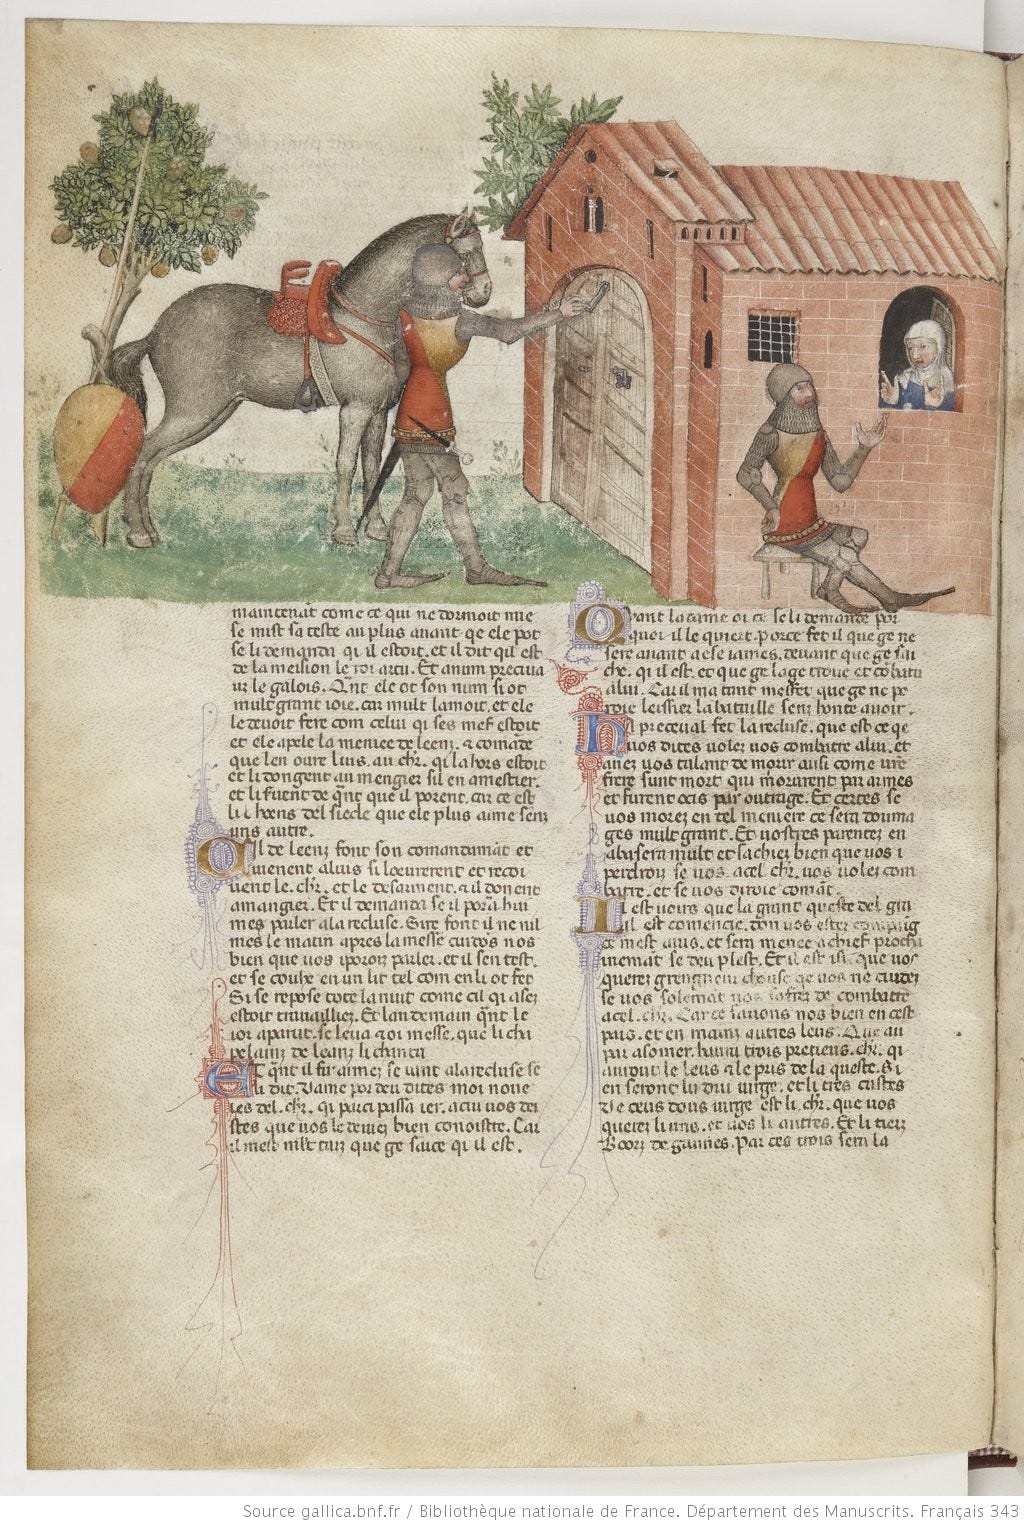 maintenãt come ce qui ne dormoit mie
se mist sa teste au plus auant qe ele pot
se li demanda qi il estoit. et il dit qͥl est
de la meision le roi artu. Et a num perceua
ur le galois. Qñt ele ot son num si ot
mult grant ioie. car mult lamoit. et ele
le deuoit fere com celui qi ses nief estoit
et ele apele la meniee de leenz. & comãde
que len oure luis. au chr̃. qi la hors estoit
et li dongent au mengier sil en a mestier.
et li fuent de qñt que il porent. car ce est
li hoens del siecle que ele plus aime senz
nus autre.
Cil de leenz font son comandemãt et
uienent aluis si loeurerent et recoi
uent le. chr̃. et le desarment. & il donent
a manguer. Et il demanda se il porͣ hui
mes parler a la recluse. Sire font il ne nil
mes le matin apres la messe cuidõs nos
bien que uos i poroiz parler. et il sen test.
et se couche en un lit tel com en li ot fet
Si se repose tote la nuit come cil qi asez
estoit trauailliez. Et lan demain qñt le
ior aparut. se leua & oi messe. que li cha
pelainz de leanz li chanta
Et qñt il fu armez se uint a la recluse se
li dit. Dame por deu dites moi noue
les del. chr̃. qi par ci passa ier. a cui uos dei
stes que uos le deuiez bien conoistre. Car
il mest mlt tarz que ge saice qi il est.
Quant la dame oi ce se li demãde por
quoi il le quiert. Porce fet il que ge ne
sere auant a ese iames. deuant que ge sai
che. qi il est. et que ge lage troue et cõbatu
a lui. Car il ma tant meffet que ge ne po
roie leissier la bataille senz honte auoir.
Ha perceual fet la recluse. que est ce qe
uos dites uolez uos combatre a lui. et
auez uos talant de morir ausi come uͬe
frere sunt mort qui morurent par armes
et furent ocis par outrage. Et certes se
uos morez en tel meniere ce sera douma
ges mult grant. Et uostres parentez en
abesera mult et sachiez bien que uos i
perdroiz se uos. a cel chr̃. uos uolez com
batre. et se uos diroie comãt.
Il est uoirs que la grant queste del gra
al est comencie. don uos estes compaing
ce mest auis. et sera menee a chief procha
inemãt se deu plest. Et il est isi que uos
querez greingneur chouse qe uos ne cuidez
se uos solemãt uos soffrez de combatre
a cel. chr̃. Car ce sauons nos bien en cest
pais. et en mainz autres leus. Que au
par asomer. haura trois precieus. chr̃. qi
auront le leus & le pris de la queste. Si
en seront li dui uirge. et li tierz chastes
De ceus dous uirge est li. chr̃. que uos
querez li uns. et uos li autres. Et li tierz
Boorz de gaunes. Par ces trois sera la
Source gallica.bnf.fr / Bibliothèque nationale de France. Département des Manuscrits. Français 343